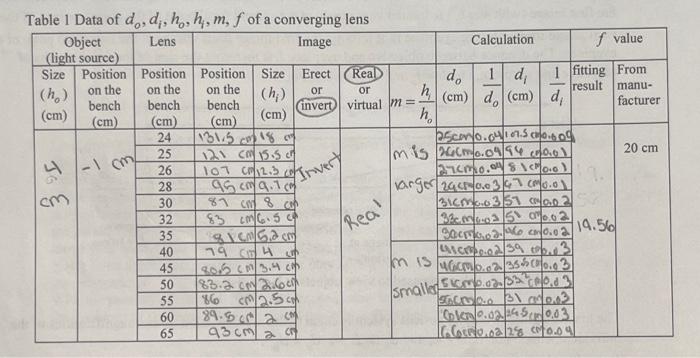 Table 1 Data of dₒ, dᵢ, hₒ, hᵢ, m, f of a converging lens
Object (light source) Lens Image Calculation f value
Size (hₒ) (cm) Position on the bench (cm) Position on the bench (cm) Position on the bench (cm) Size (hᵢ) (cm) Erect or invert Real or virtual m = hᵢ/hₒ dₒ (cm) 1/dₒ dᵢ (cm) 1/dᵢ fitting result From manu-facturer
4 cm -1 cm Invert Real 19.56 20 cm
m is larger
m is smaller
24 131.5 cm 18 cm 25cm 0.04 107.5 cm
25 121 cm 15.5 cm 26cm 0.04 96 cm 0.01
26 107 cm 12.3 cm 27cm 0.04 81cm 0.01
28 95 cm 9.7 cm 29cm 0.03 67 cm 0.01
30 87 cm 8 cm 31cm 0.03 57 cm 0.02
32 83 cm 6.5 cm 33cm 0.03 51 cm 0.02
35 81 cm 5.2 cm 0.02
40 79 cm 4 cm 41cm 0.02 39 cm 0.03
45 80.5 cm 3.4 cm 46cm 0.02 35.5cm 0.03
50 83.2 cm 2.6cm 51cm 0.02 0.03
55 86 cm 2.5cm 56cm 31 cm 0.03
60 89.5 cm 2 cm 61cm 0.02 0.03
65 93 cm 2 cm 66cm 0.02 28 cm 0.04